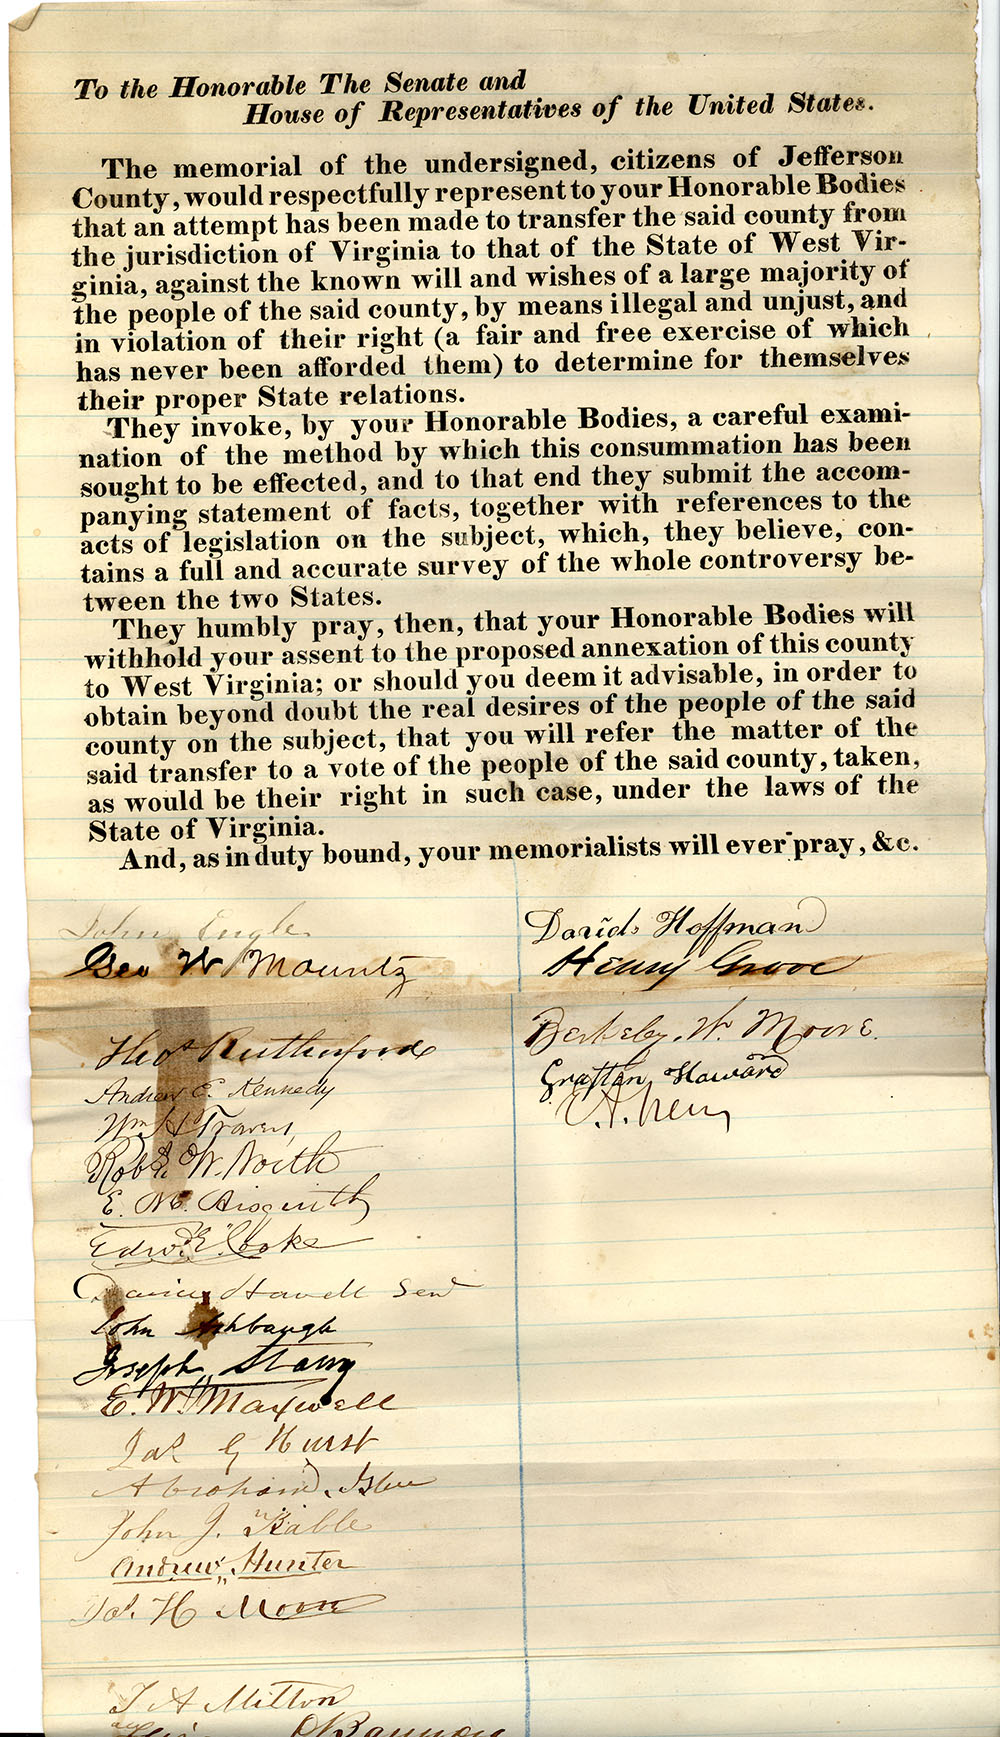 To the Honorable The Senate and
House of Representatives of the United States.
The memorial of the undersigned, citizens of Jefferson
County, would respectfully represent to your Honorable Bodies
that an attempt has been made to transfer the said county from
the jurisdiction of Virginia to that of the State of West Vir-
ginia, against the known will and wishes of a large majority of
the people of the said county, by means illegal and unjust, and
in violation of their right (a fair and free exercise of which
has never been afforded them) to determine for themselves
their proper State relations.
They invoke, by your Honorable Bodies, a careful exami-
nation of the method by which this consummation has been
sought to be effected, and to that end they submit the accom-
panying statement of facts, together with references to the
acts of legislation on the subject, which, they believe, con-
tains a full and accurate survey of the whole controversy be-
tween the two States.
They humbly pray, then, that your Honorable Bodies will
withhold your assent to the proposed annexation of this county
to West Virginia; or should you deem it advisable, in order to
obtain beyond doubt the real desires of the people of the said
county on the subject, that you will refer the matter of the
said transfer to a vote of the people of the said county, taken,
as would be their right in such case, under the laws of the
State of Virginia.
And, as in duty bound, your memorialists will ever pray, &c.
John Engle
Geo W Mountz
Thos Rutherford
Andrew E. Kennedy
Wm H Travers
Robt W. North
E. M. Aisquith
Edw. E. Cooke
Howell Senr
John Ashbaugh
Joseph Starry
E. W. Maxwell
Jas G Hurst
Abraham Isler
John J. Kable
Andrew Hunter
Jas. H Moore
J A Milton
O'Bannon
David Hoffman
Henry Grove
Berkeley W. Moore.
Grattan Howard